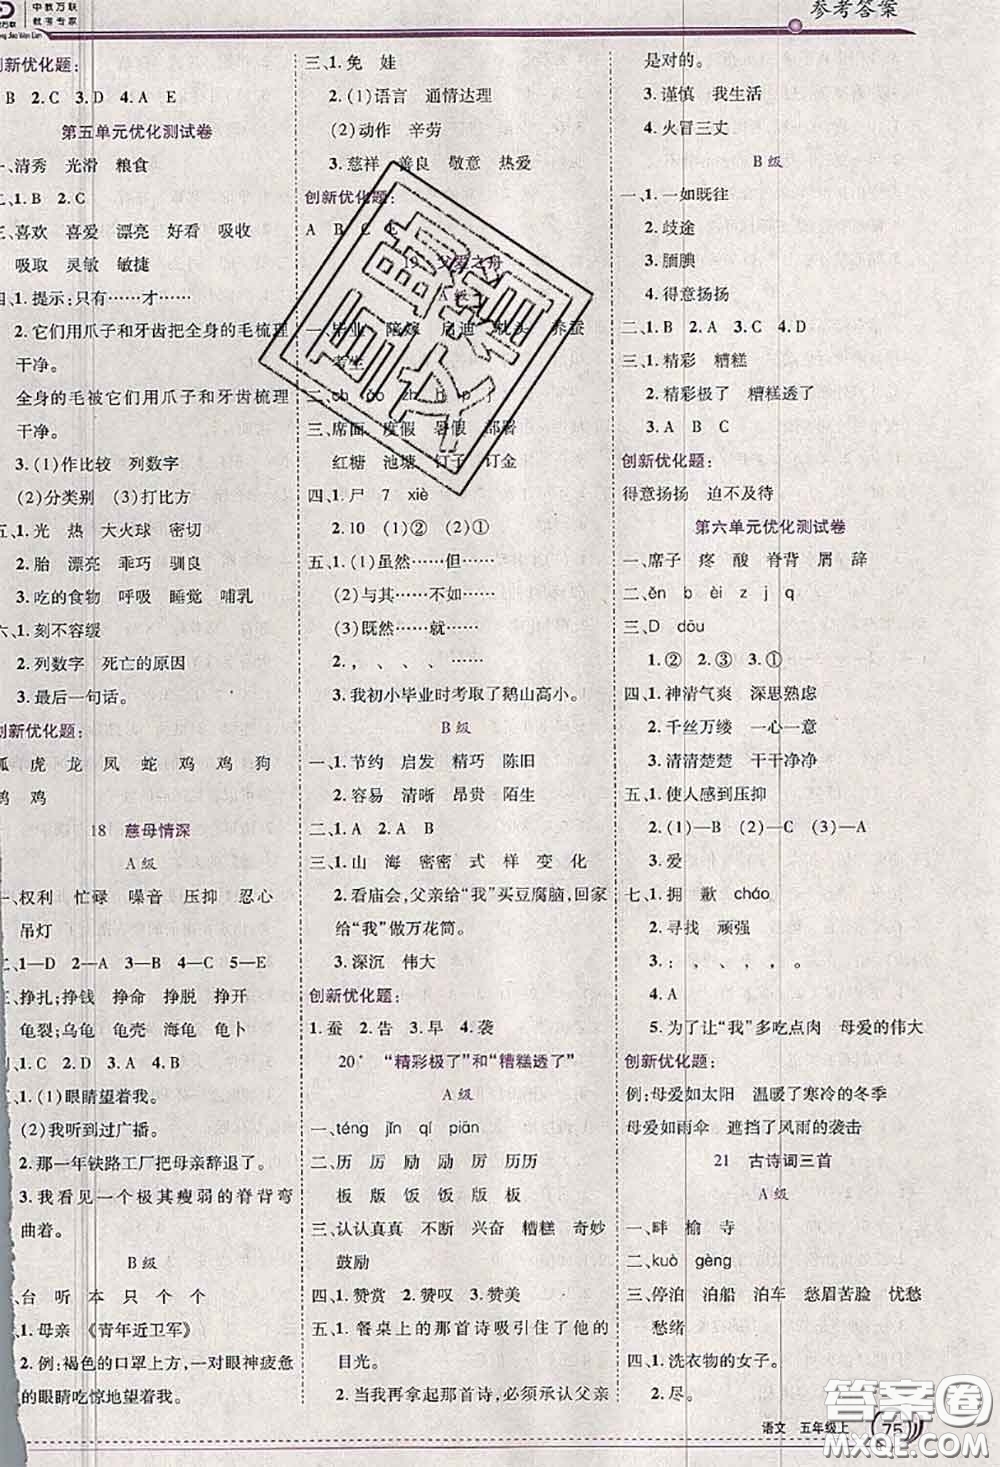 中教万联
教考专家
参考答案
创新优化题:
B 2.C 3.D 4.A E
第五单元优化测试卷
一、清秀 光滑 粮食
二、1.B 2.C
三、喜欢 喜爱 漂亮 好看 吸收
吸取 灵敏 敏捷
四、1.提示:只有……才……
2.它们用爪子和牙齿把全身的毛梳理
干净。
全身的毛被它们用爪子和牙齿梳理
干净。
3.(1)作比较 列数字
(2)分类别 (3)打比方
五、1.光 热 大火球 密切
2.胎 漂亮 乖巧 驯良
3.吃的食物 呼吸 睡觉 哺乳
六、1.刻不容缓
2.列数字 死亡的原因
3.最后一句话。
创新优化题:
狐 虎 龙 凤 蛇 鸡 鸡 狗
鹅 鸡
18 慈母情深
A级
一、权利 忙碌 噪音 压抑 忍心
吊灯
二、1—D 2—A 3—B 4—C 5—E
三、挣扎;挣钱 挣命 挣脱 挣开
龟裂;乌龟 龟壳 海龟 龟卜
四、1.C 2.D 3.A 4.B
五、1.(1)眼睛望着我。
(2)我听到过广播。
2.那一年铁路工厂把母亲辞退了。
3.我看见一个极其瘦弱的脊背弯
曲着。
B级
一、台 听 本 只 个 个
二、1.母亲 《青年近卫军》
2.例:褐色的口罩上方,一对眼神疲惫
的眼睛吃惊地望着我。
三、1.免 娃
2.(1)语言 通情达理
(2)动作 辛劳
3.慈祥 善良 敬意 热爱
创新优化题:
A B C E
19 父爱之舟
A级
一、毕业 陪嫁 启迪 枕头 养蚕
考生
二、ch áo zh p
三、席面 度假 暑假 部署
红糖 池塘 钉子 订金
四、1.尸 7 xiè
2.10 (1)② (2)①
五、1.(1)虽然……但……
(2)与其……不如……
(3)既然……就……
2., 、 、 ……
3.我初小毕业时考取了鹅山高小。
B级
一、1.节约 启发 精巧 陈旧
2.容易 清晰 昂贵 陌生
二、1.A 2.A B
三、1.山 海 密密 式 样 变 化
2.看庙会,父亲给“我”买豆腐脑,回家
给“我”做万花筒。
3.深沉 伟大
创新优化题:
1.蚕 2.告 3.早 4.袭
20* “精彩极了”和“糟糕透了”
A级
一、téng jǐn qí piān
二、历 厉 励 历 厉 历历
板 版 饭 饭 版 板
三、认认真真 不断 兴奋 糟糕 奇妙
鼓励
四、1.赞赏 2.赞叹 3.赞美
五、1.餐桌上的那首诗吸引住了他的
目光。
2.当我再拿起那首诗,必须承认父亲
是对的。
3.谨慎 我生活
4.火冒三丈
B级
一、1.一如既往
2.歧途
3.腼腆
4.得意扬扬
二、1.B 2.A 3.C 4.D
三、1.精彩 糟糕
2.精彩极了 糟糕透了
3.A B C
创新优化题:
得意扬扬 迫不及待
第六单元优化测试卷
一、席子 疼 酸 脊背 屑 辞
二、ěn b èi z j q
三、D dōu
1.② 2.③ 3.①
四、1.神清气爽 深思熟虑
2.千丝万缕 一心一意
3.清清楚楚 干干净净
五、1.使人感到压抑
2.(1)—B (2)—C (3)—A
3.爱
七、1.拥 歉 cháo
2.寻找 顽强
3.: 、 , 、 。
4.A
5.为了让“我”多吃点肉 母爱的伟大
创新优化题:
例:母爱如太阳 温暖了寒冷的冬季
母爱如雨伞 遮挡了风雨的袭击
21 古诗词三首
A级
一、畔 榆 寺
二、kuò gèng
三、停泊 泊船 泊车 愁眉苦脸 忧愁
愁绪
四、1.洗衣物的女子。
2.尽。
语文 五年级上
75
答案圈